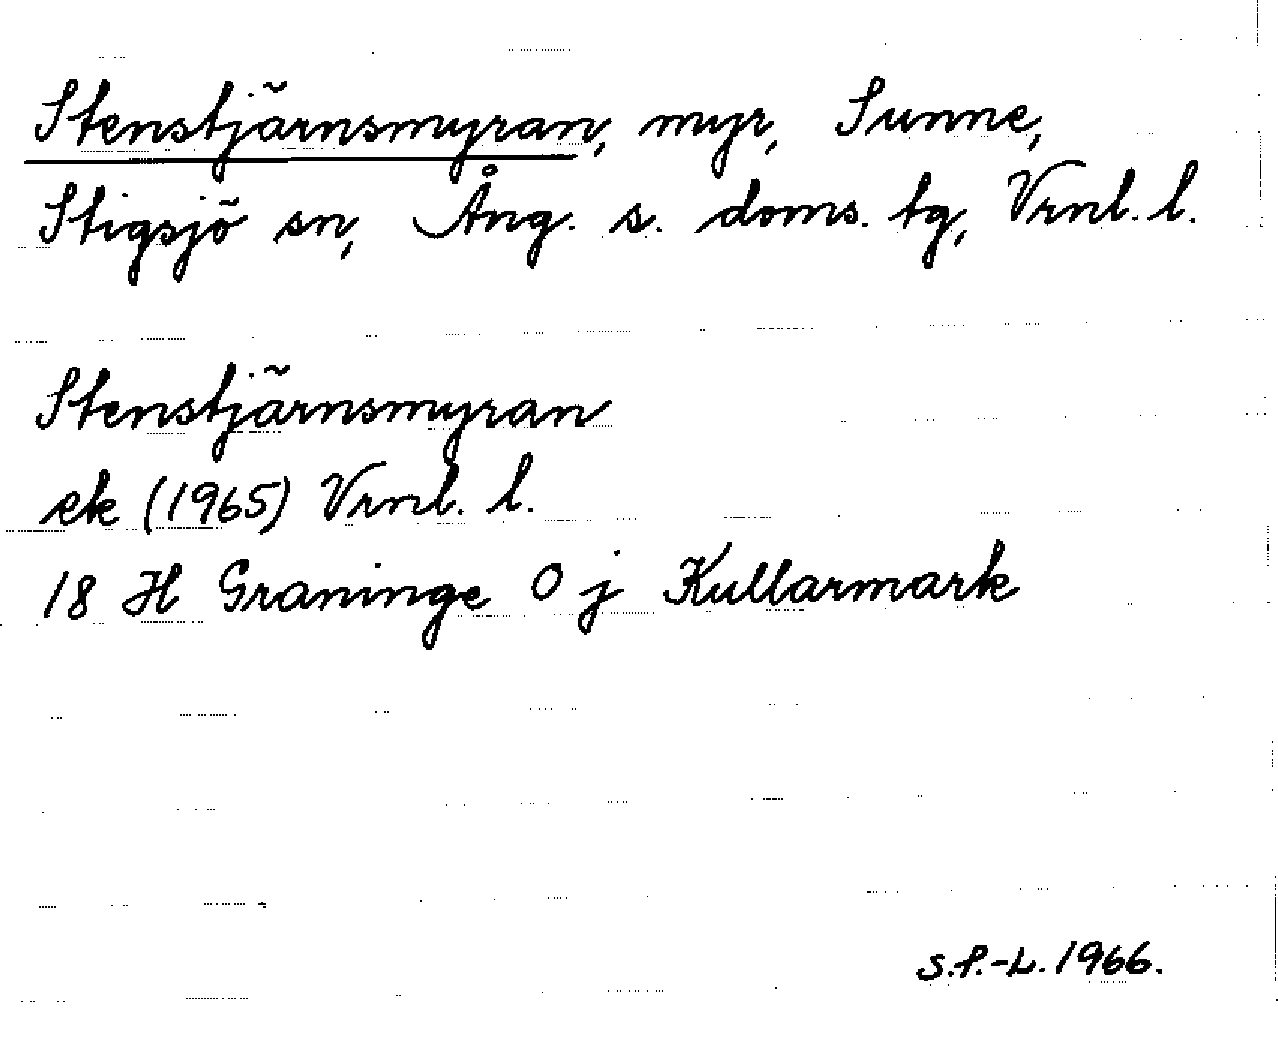 Stenstjärnsmyran, myr, Sunne,
Stigsjö sn, Ång. s. doms. tg, Vrnl. l.
Stenstjärnsmyran
ek (1965) Vrnl. l.
18 H Graninge O j Kullarmark
S.P.-L. 1966.